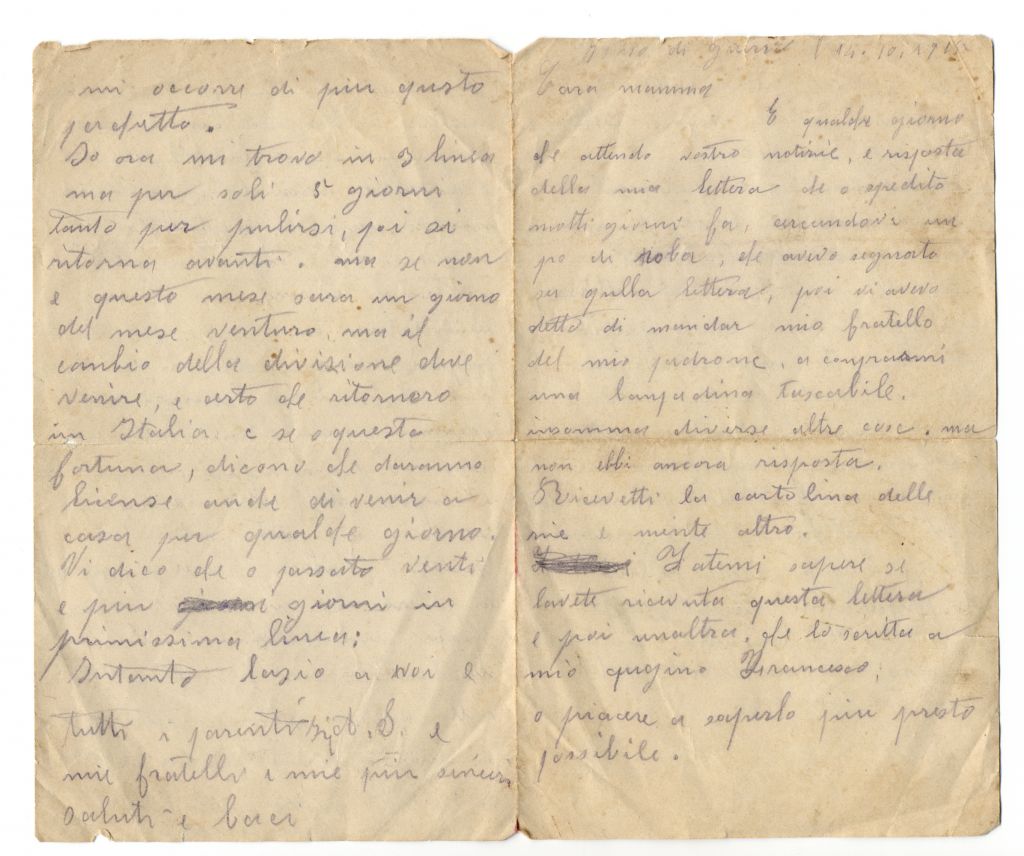 di 14.10.191
Cara mamma
E qualde giorno
de attendo vostro notizie, e risposta
della mia lettera de o spedito
molti giorni fa, cercandovi un
po di roba, de avevo segnato
su qulla lettera, poi vi avevo
detto di mandar mio fratello
del mio padrone, a conprarmi
una lanpadina tascabile.
insomma diverse altre cose. ma
non ebbi ancora risposta.
Ricevetti la cartolina delle
mie e niente altro.
Fatemi sapere se
lavete ricevuta questa lettera
e poi unaltra, de lo scritta a
mio qugino Francesco,
o piacere a saperlo piu presto
possibile.
mi occorre di piu questo
perdetto.
Io ora mi trovo in 3 linea
ma per soli 5 giorni
tanto per pulirsi, poi si
ritorna avanti. ma se non
e questo mese sara un giorno
del mese venturo, ma il
canbio della divisione deve
venire, e certo de ritornero
in Italia e se o questa
fortuna, dicono de daranno
license ande di venir a
casa per qualde giorno.
Vi dico de o passato venti
e piu giorni in
primissima linea:
Intanto lasio a voi e
tutti i parenti S. e
mie fratello i mie piu sinceri
saluti e baci